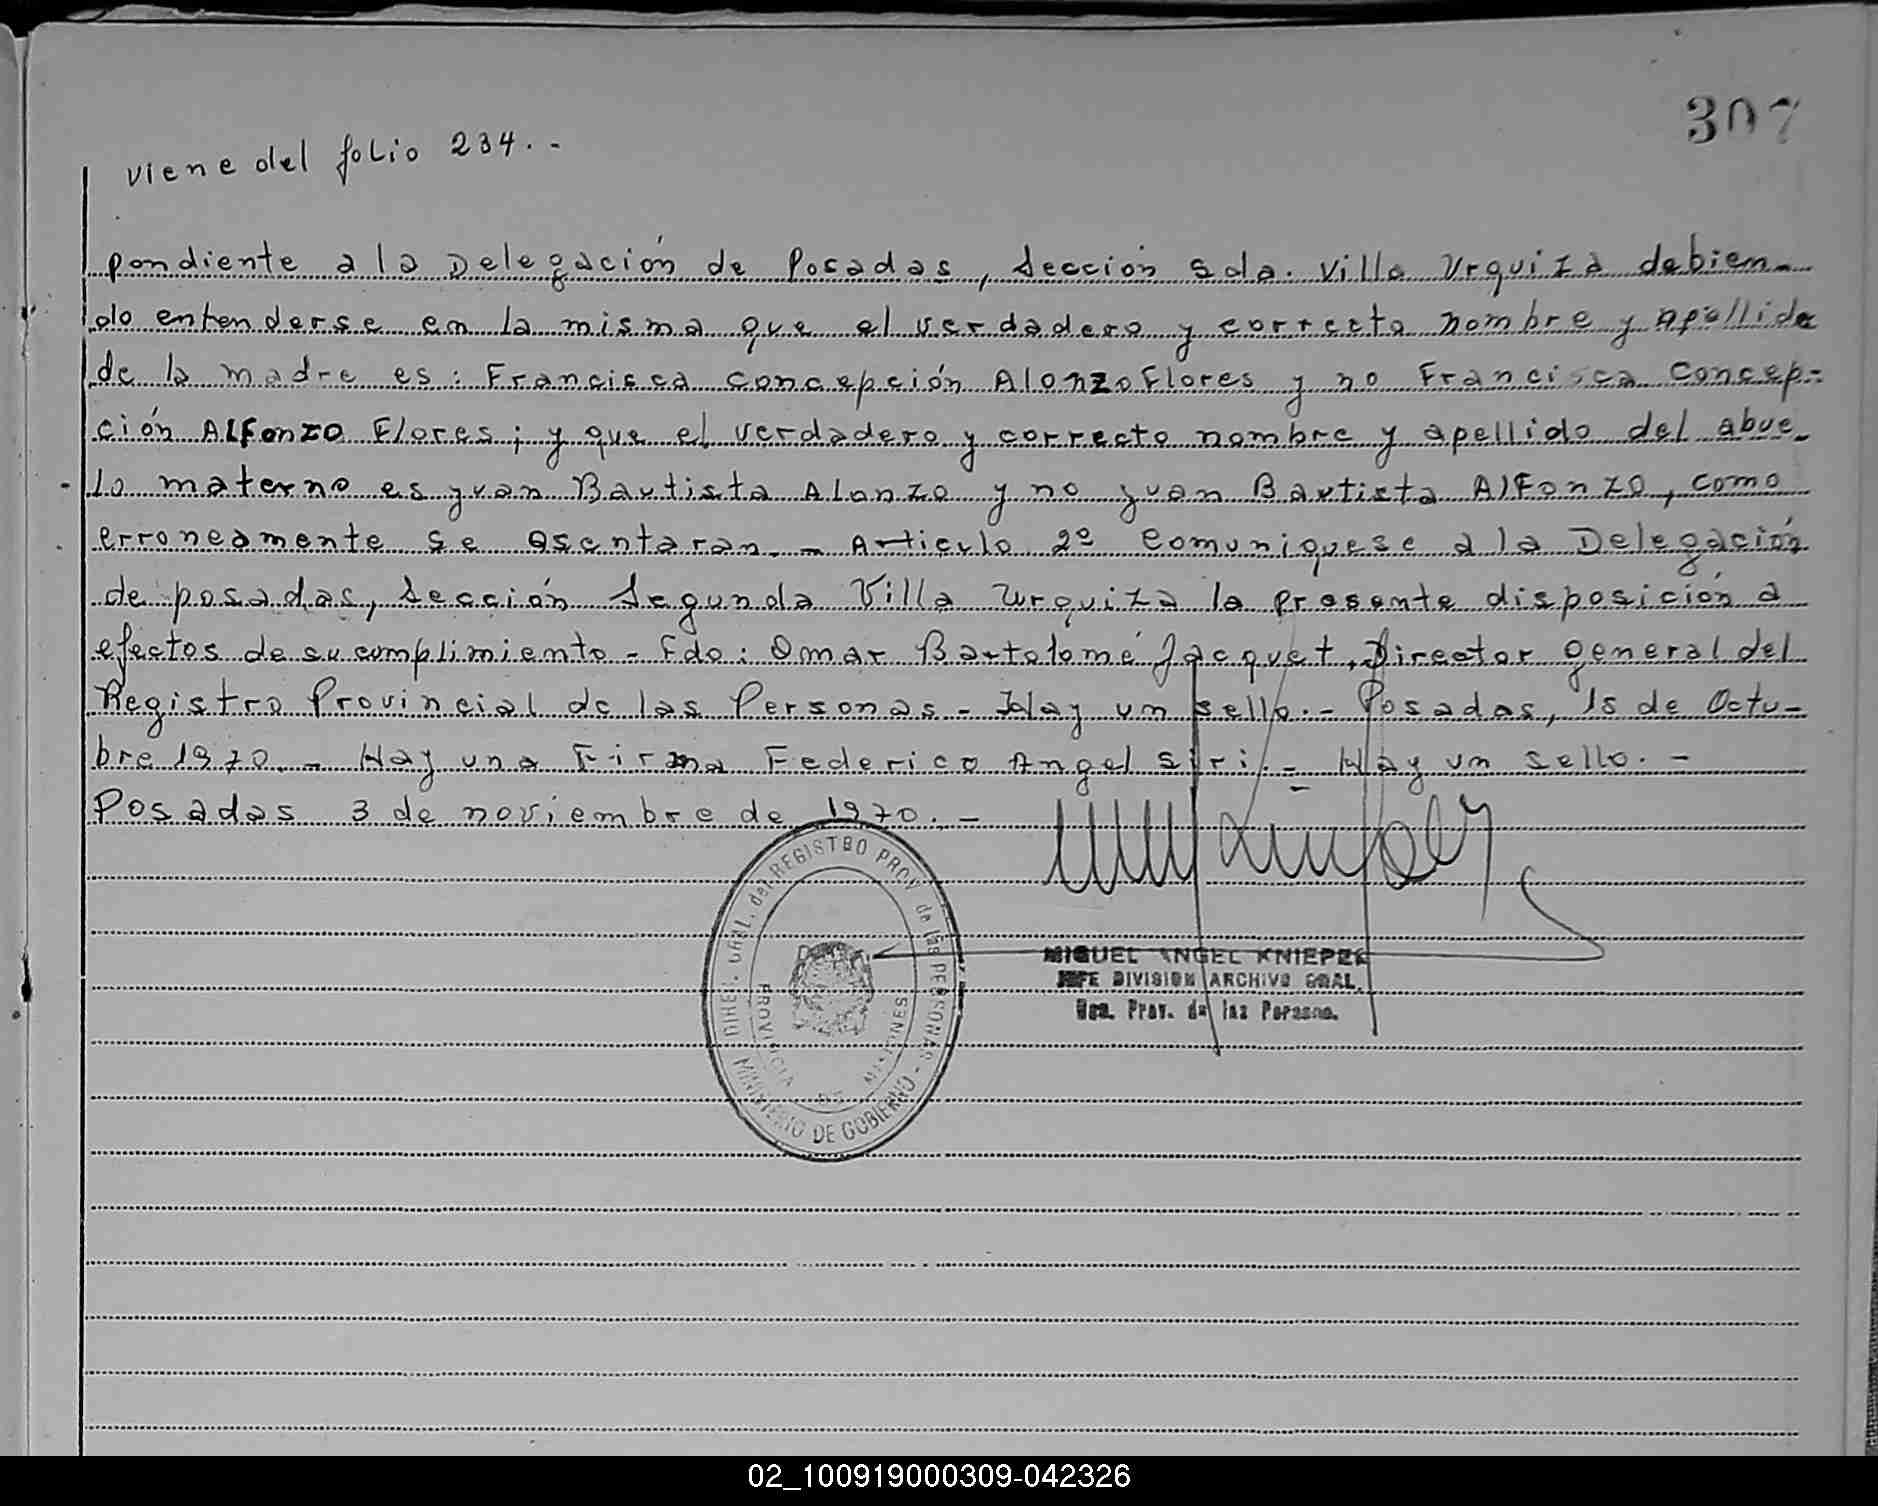 307
viene del folio 234. . -
pondiente a la Delegación de Posadas, Sección 2da. Villa Urquiza debien-
do entenderse en la misma que el verdadero y correcto nombre y apellido
de la madre es: Francisca Concepción Alonzo Flores y no Francisca Concep-
ción Alfonzo Flores; y que el verdadero y correcto nombre y apellido del abue-
lo materno es Juan Bautista Alonzo y no Juan Bautista Alfonzo, como
erroneamente se asentaran. - Articulo 2º Comuniquese a la Delegación
de posadas, Sección Segunda Villa Urquiza la presente disposición a
efectos de su cumplimiento - Fdo: Omar Bartolomé Jacquet, Director general del
Registro Provincial de las Personas - Hay un sello. - Posadas, 15 de Octu-
bre 1970. - Hay una Firma Federico Angel Siri. - Hay un sello. -
Posadas 3 de noviembre de 1970. -
DIREC. GRAL. del REGISTRO PROV. de las PERSONAS -
MINISTERIO DE GOBIERNO -
PROVINCIA DE MISIONES
MIGUEL ANGEL KNIEPER
JEFE DIVISION ARCHIVO GRAL.
Prov. de las Person.
02_100919000309-042326